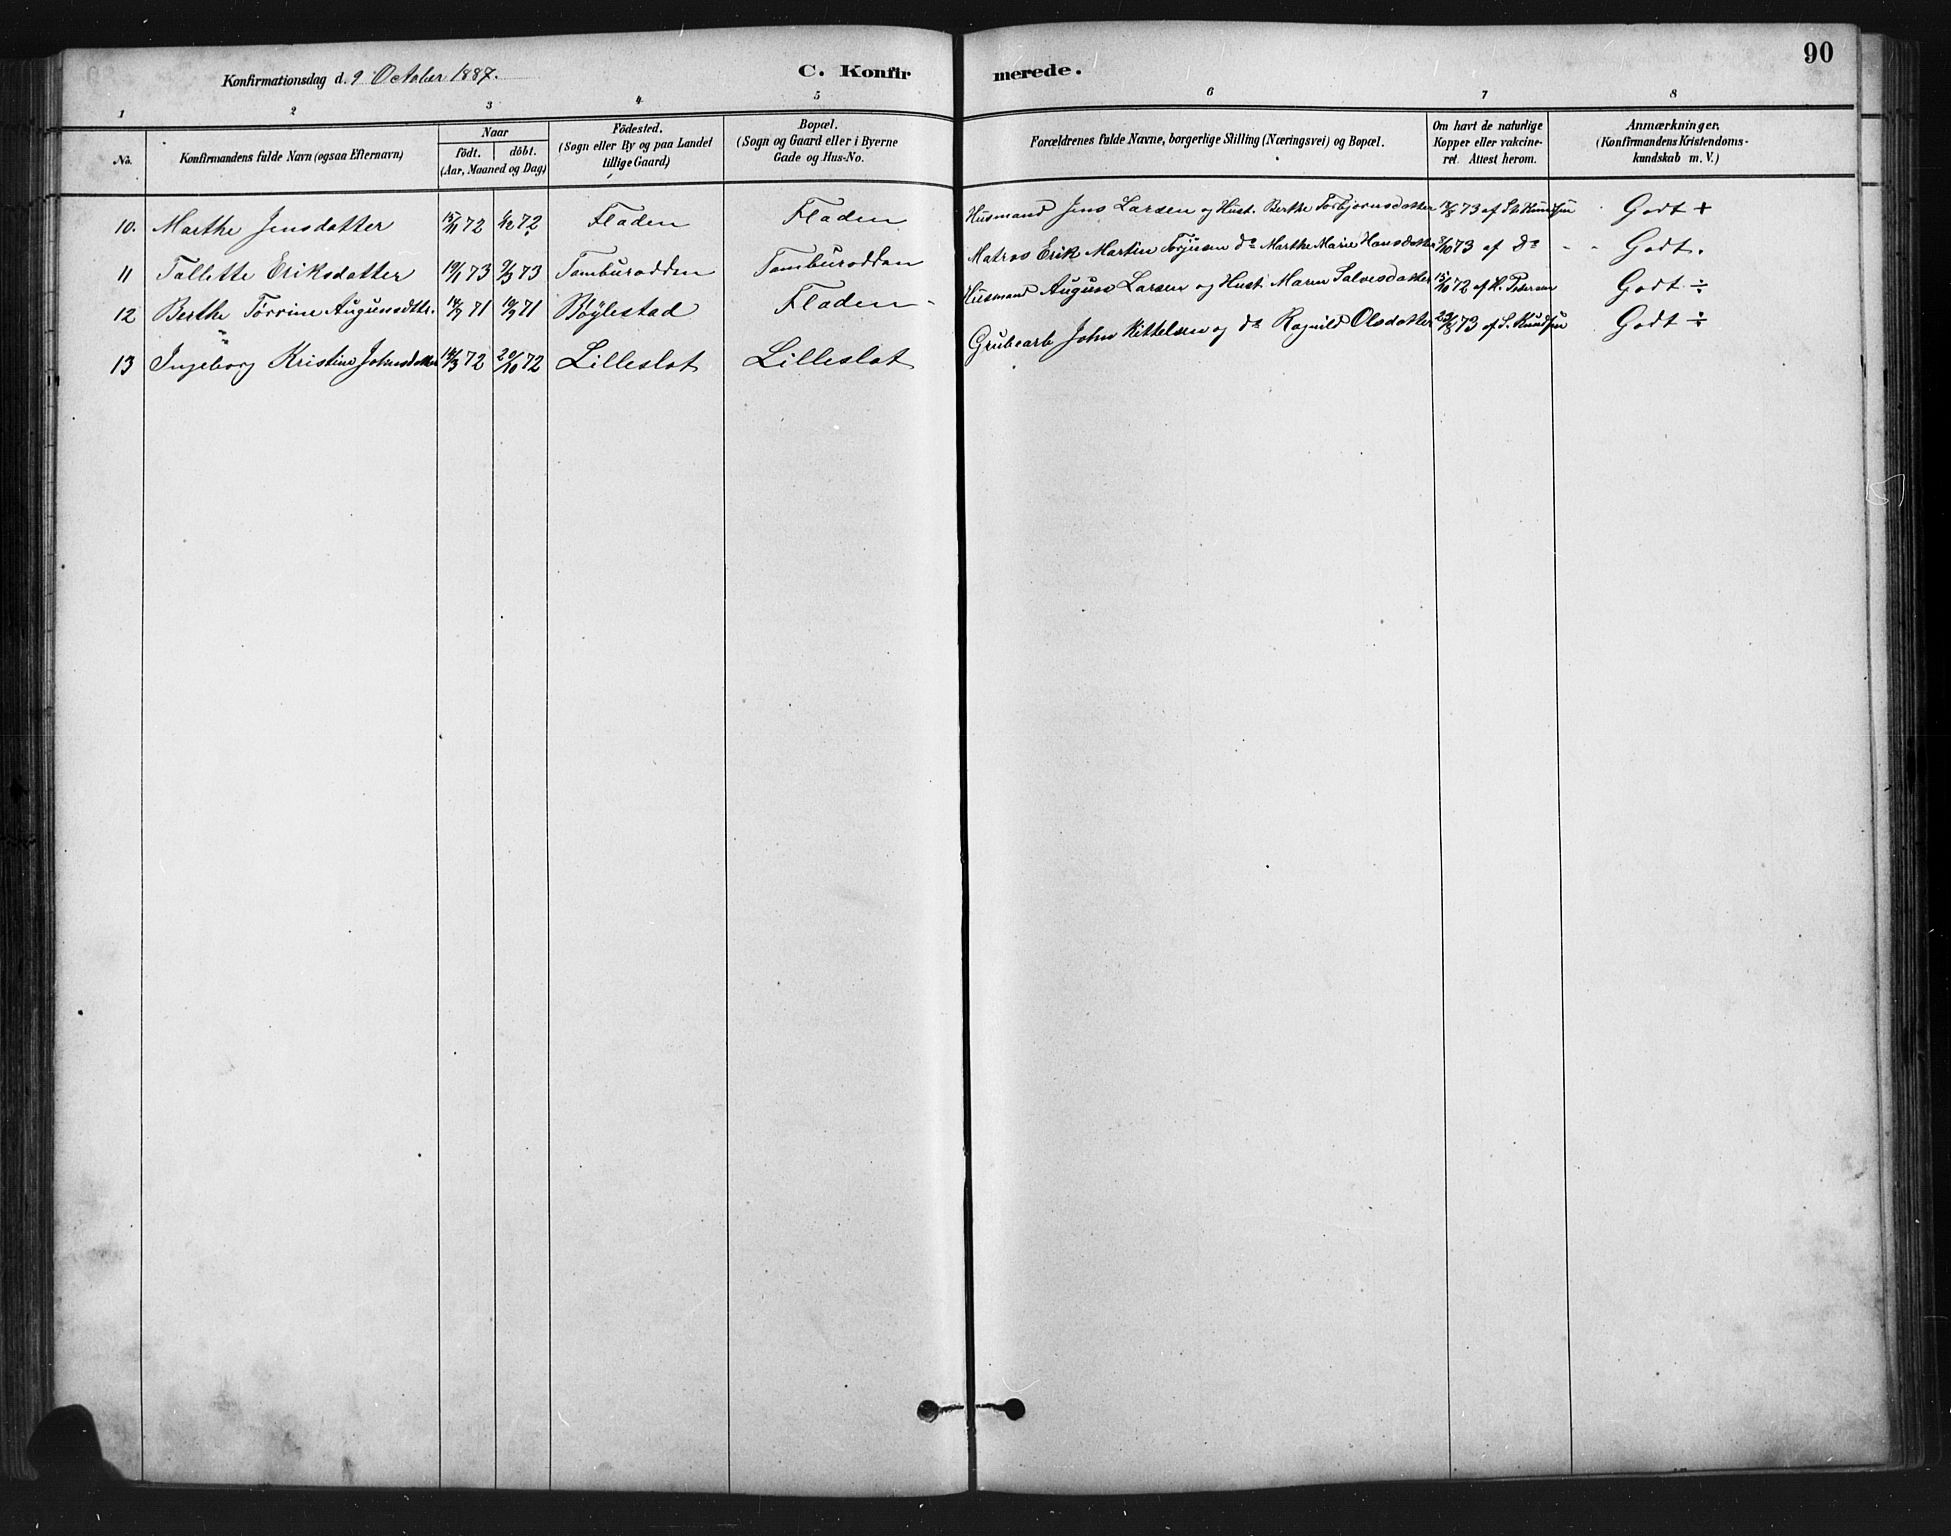 90
Konfirmationsdag d. 9 October 1887.
C. Konfir merede.
1 2 3 4 5 6 7 8
No.
Konfirmandens fulde Navn (ogsaa Efternavn)
Naar
født. døbt.
(Aar, Maaned og Dag)
Födested.
(Sogn eller By og paa Landet
tillige Gaard)
Bopæl.
(Sogn og Gaard eller i Byerne
Gade og Hus-No.
Forældrenes fulde Navne, borgerlige Stilling (Næringsvei) og Bopæl.
Om havt de naturlige
Kopper eller vakcine-
ret. Attest herom.
Anmærkninger.
(Konfirmandens Kristendoms-
kundskab m. V.)
10. Marthe Jensdatter 15/11 72 72 Fladen Fladen Husmand Jens Larsen og Hust. Berthe Torbjornsdatter 73 af Godt +
11 Tallette Eriksdatter 19/1 73 9/3 73 Tamburodden Tamburodden Matros Erik Martin Torjusen do Marthe Marie Hansdatter 73 af Do - - Godt.
12 Berthe Torrine Augunsdtter. 71 71 Böylestad Fladen - Husmand Auguns Larsen og Hust. Maren Salvesdatter 15/10 72 af H. Pedersen Godt ÷
13 Ingeborg Kristine Johnsdatter 72 20/10 72 Lilleslot Lilleslot Grubearb John Kittelsen og do Ragnild Olsdatter 73 af Godt ÷